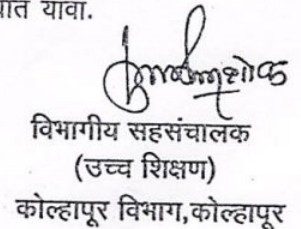 यावा.
विभागीय सहसंचालक
(उच्च शिक्षण)
कोल्हापूर विभाग,कोल्हापूर